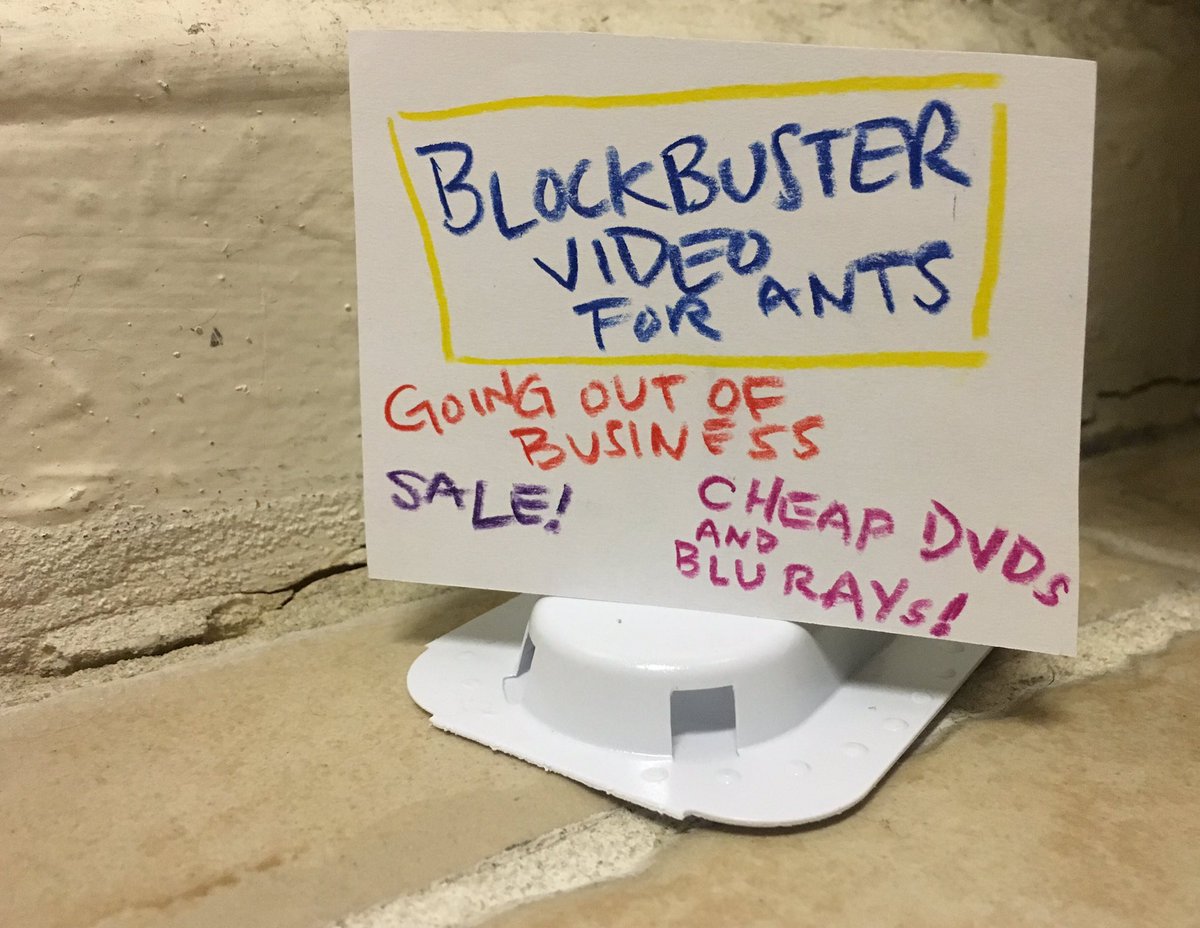 BLOCKBUSTER
VIDEO
FOR ANTS
GOING OUT OF
BUSINESS
SALE!
CHEAP DVDs
AND
BLU RAYs!